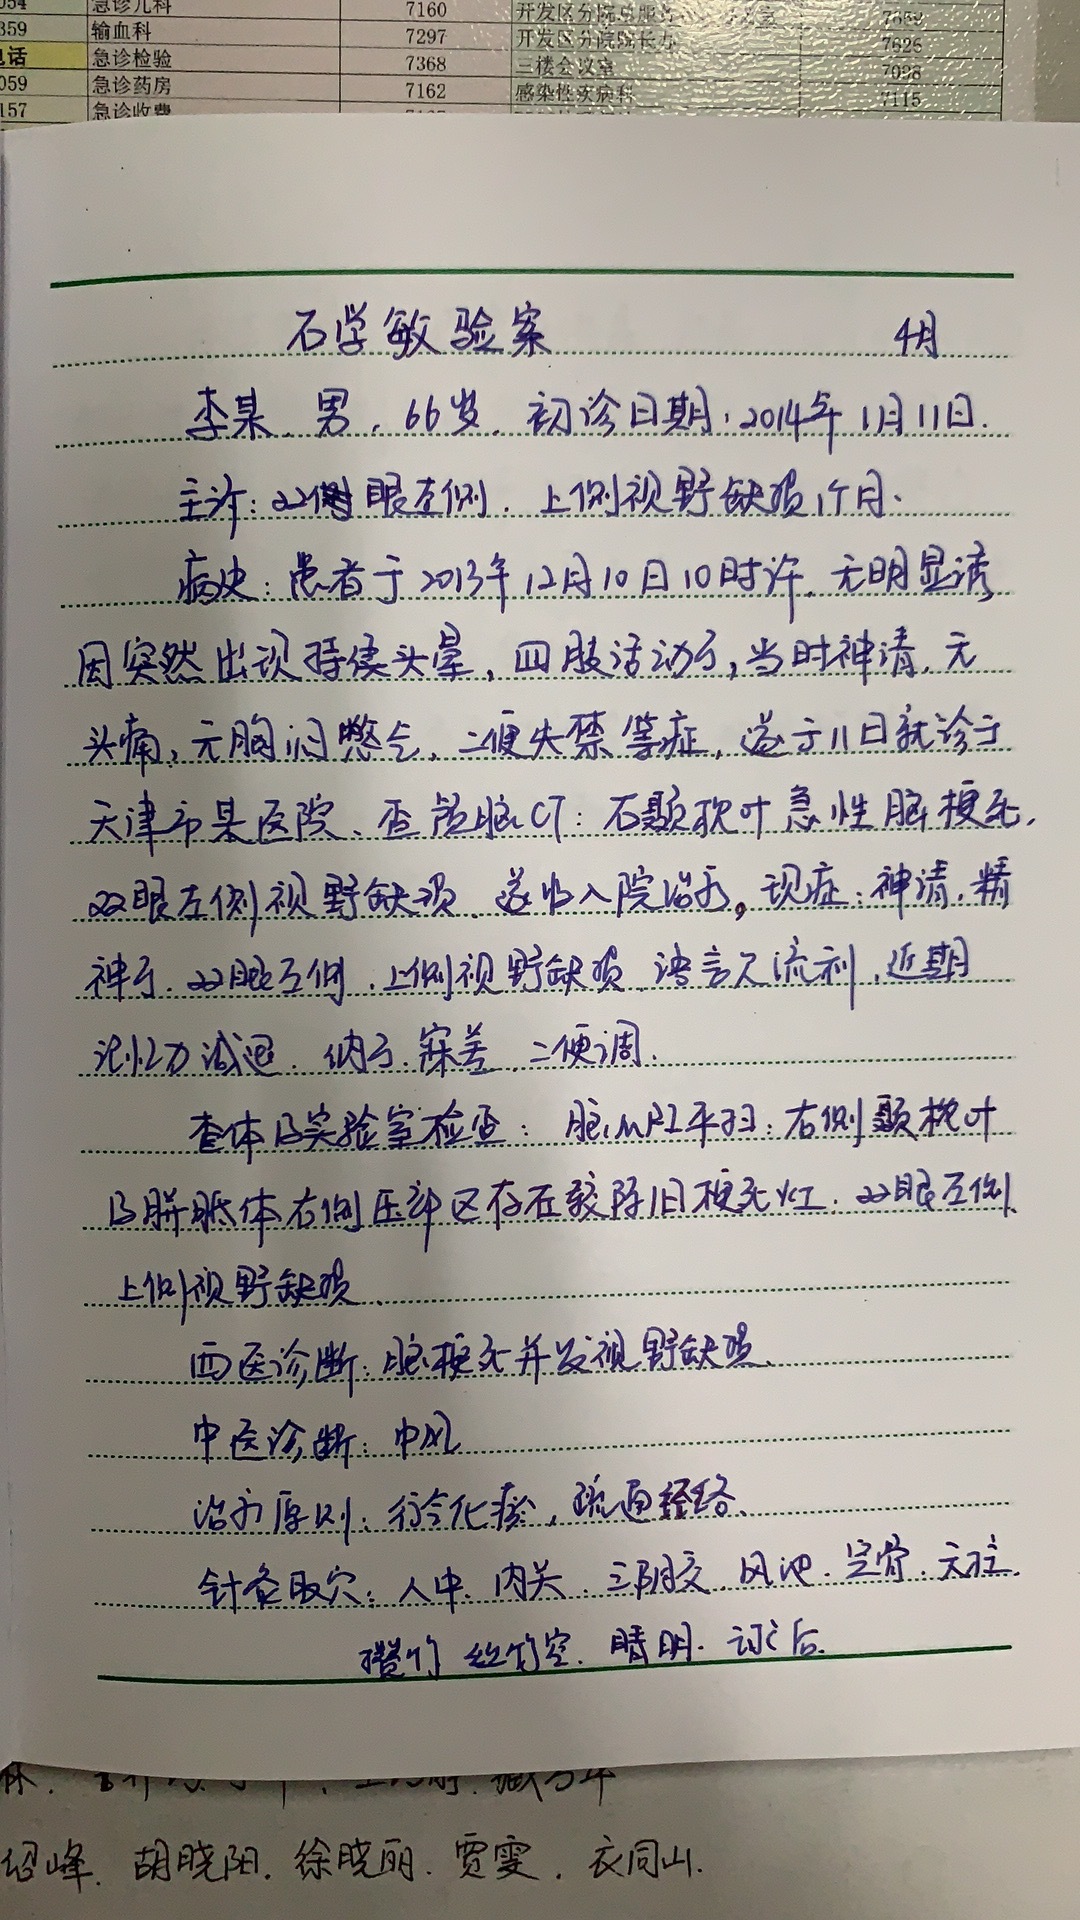 054 急诊儿科 7160 开发区分院总服 7652
359 输血科 7297 开发区分院院长办 7626
电话 急诊检验 7368 三楼会议室 7098
059 急诊药房 7162 感染性疾病科 7115
157 急诊收费
石学敏验案 4月
李某、男，66岁、初诊日期：2014年1月11日.
主诉：双侧眼左侧、上侧视野缺损1个月.
病史：患者于2013年12月10日10时许，无明显诱
因突然出现持续头晕，四肢活动可，当时神清，无
头痛，无胸闷憋气，二便失禁等症，遂于11日就诊于
天津市某医院、查颅脑CT：右颞枕叶急性脑梗死，
双眼左侧视野缺损、遂收入院治疗。现症：神清，精
神可、双眼左侧、上侧视野缺损、语言欠流利、近期
记忆力减退、纳可、寐差、二便调.
查体及实验室检查：脑MRI平扫：右侧颞枕叶
及胼胝体右侧压部区存在较陈旧梗死灶；双眼左侧、
上侧视野缺损、
西医诊断：脑梗死并发视野缺损.
中医诊断：中风
治疗原则：行气化瘀，疏通经络、
针灸取穴：人中、内关、三阴交、风池、完骨、天柱、
攒竹 丝竹空、睛明、
林、
绍峰、胡晓阳、徐晓丽、贾雯、衣同山.